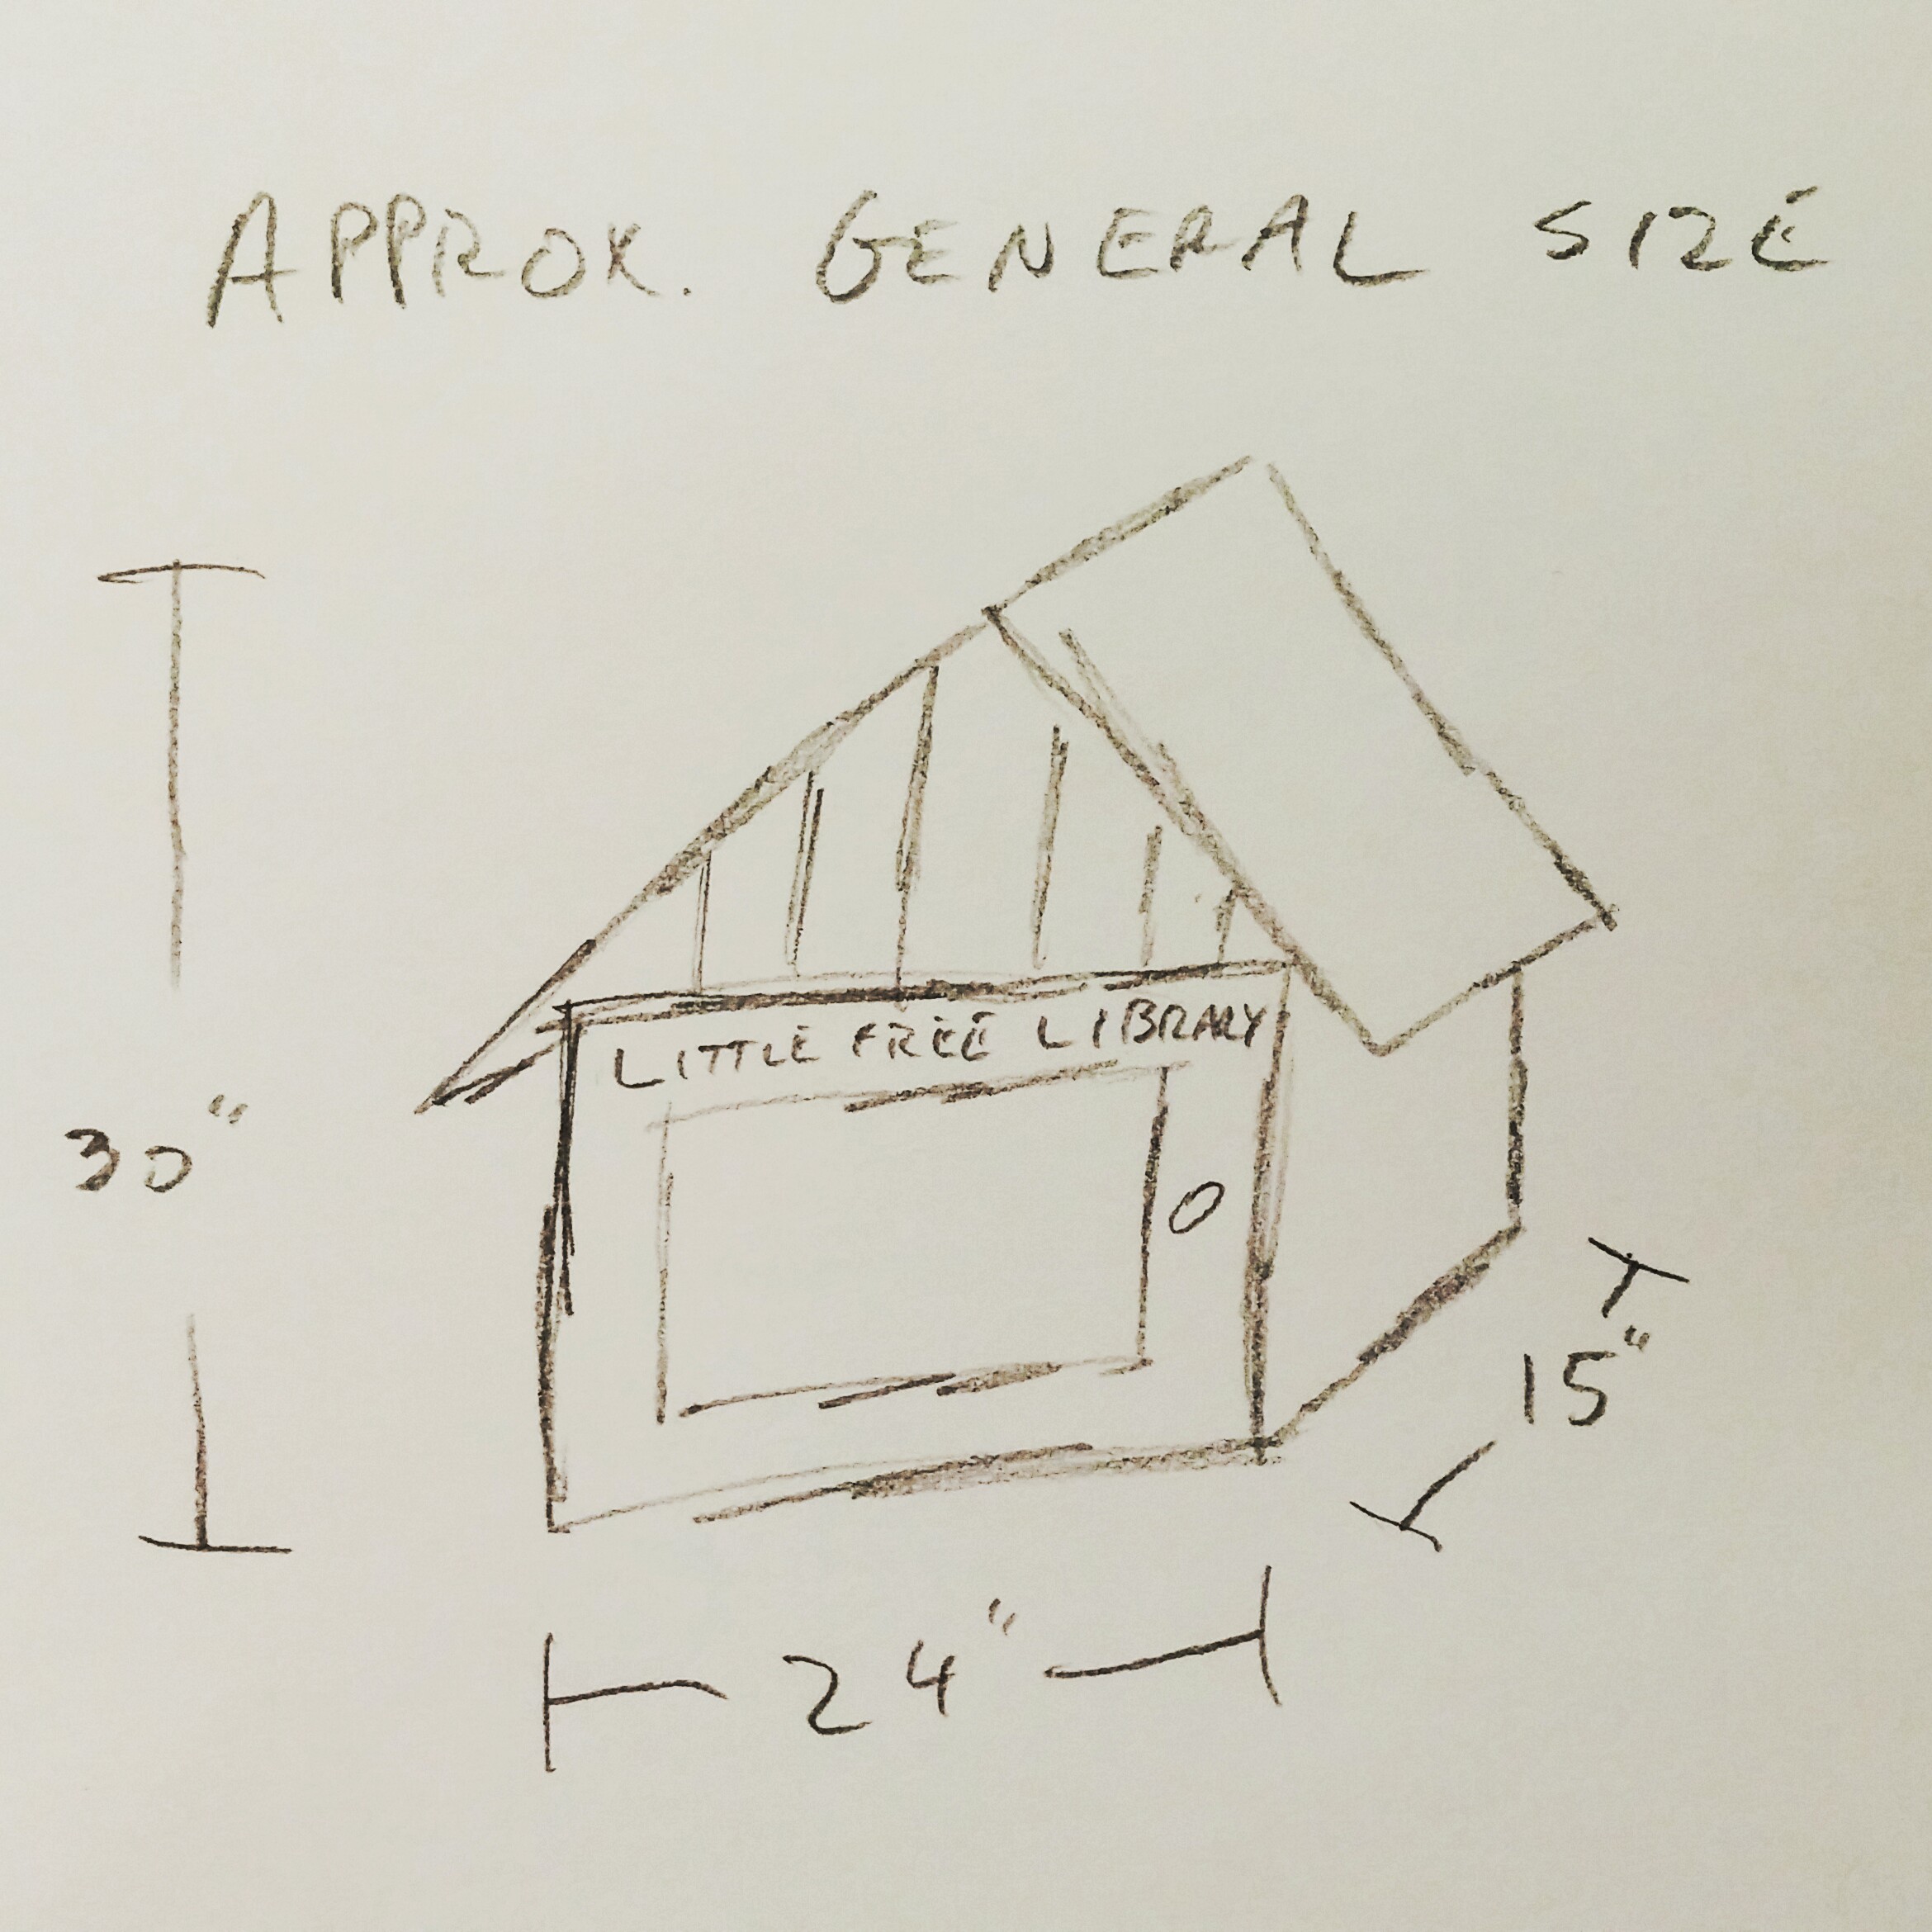 APPROX. GENERAL SIZE
LITTLE FREE LIBRARY
30"
15"
24"